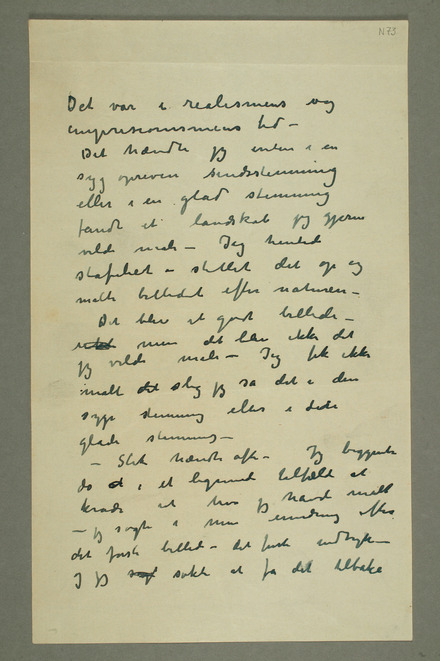 N 73
Det var i realismens og
impresionismens tid –
Det hændte jeg enten i en
syg opreven sindsstemning
eller i en glad stemming
fandt et landskab jeg gjerne
vilde male – Jeg hentede
stafeliet – stillet det op og
malte billedet efter naturen –
Det blev et godt billede –
men det blev ikke det
jeg vilde male – Jeg fik ikke
malt det slig jeg så det i den
syge stemning eller i den
glade stemning –
– Slik hændte ofte – Jeg begynte
da i et lignende tilfælde at
skrabe ut hva jeg havde malt
– jeg søgte i min erindring efter
det første billed – det første indtryk –
og jeg søkte at få det tilbake